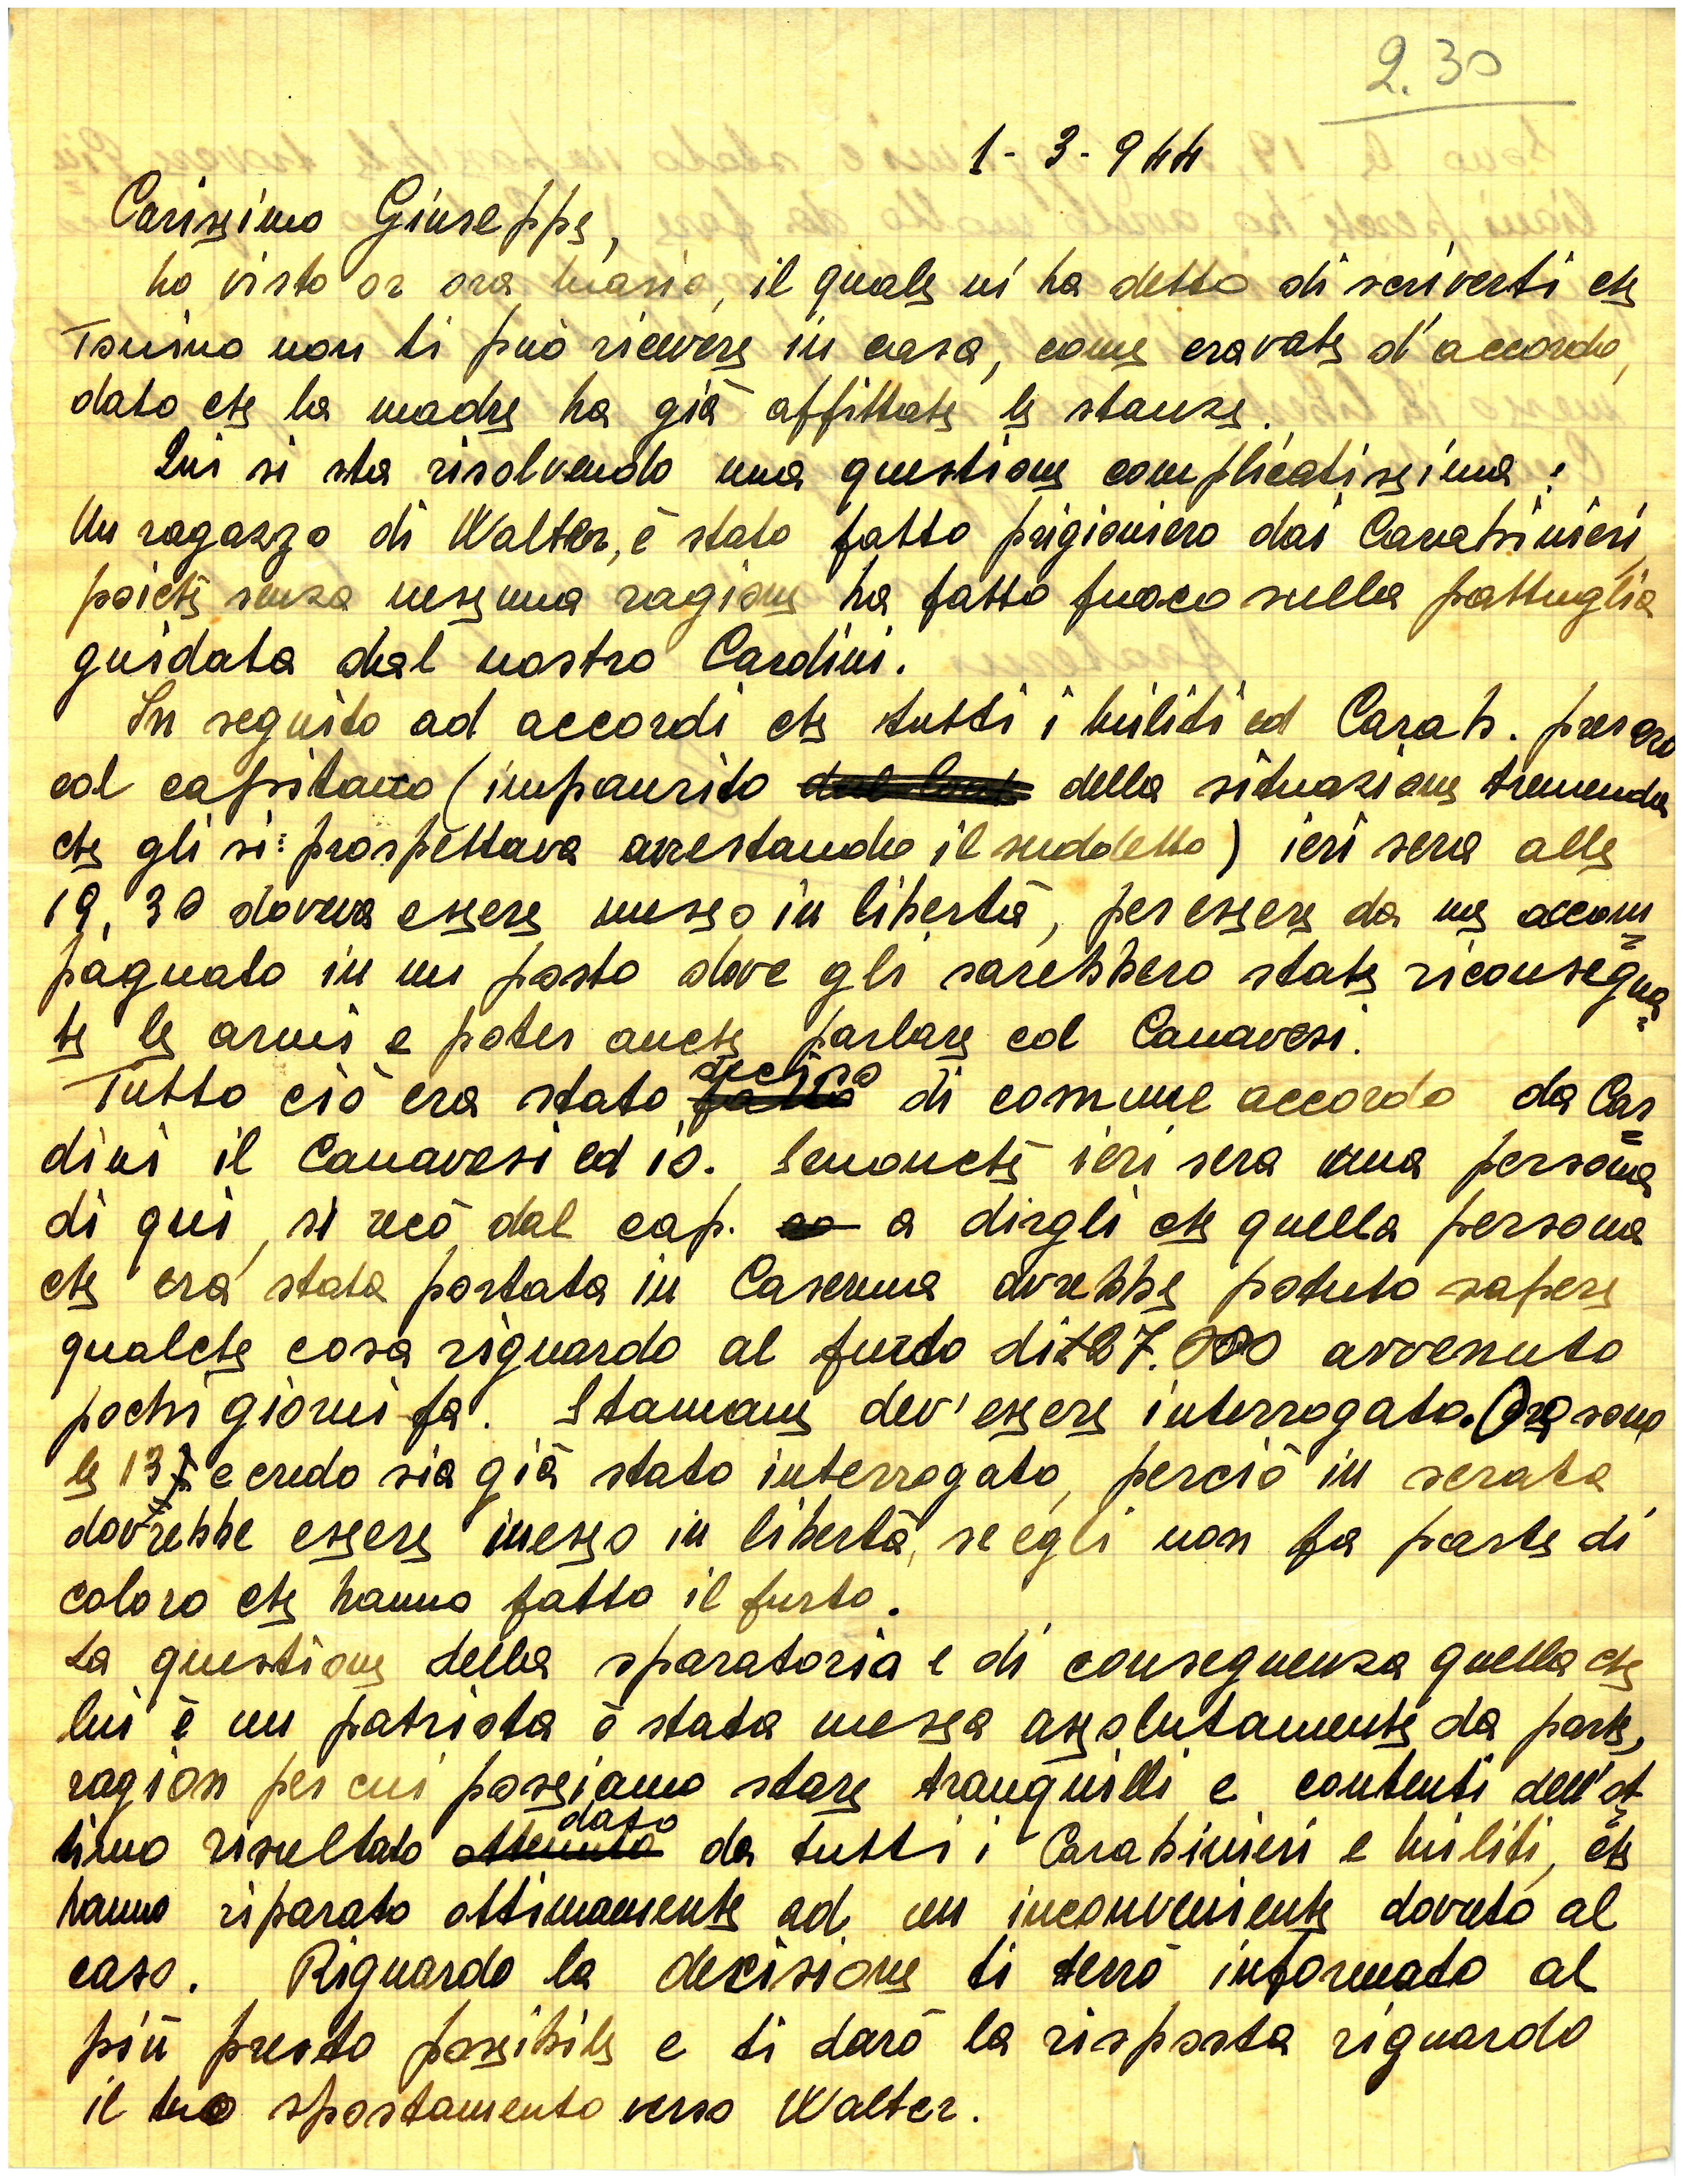 2.30
1-3-944
Carissimo Giuseppe,
ho visto or ora, il quale mi ha detto di scriverti che
non ti può ricevere in casa, come eravate d'accordo,
dato che la madre ha già affittate le stanze.
Qui si sta risolvendo una questione complicatissima:
Un ragazzo di Walter, è stato fatto prigioniero dai Carabinieri,
poichè senza nessuna ragione ha fatto fuoco sulla pattuglia
guidata dal nostro Cardini.
In seguito ad accordi che tutti i militi ed Carab. presero
col capitano (impaurito della situazione tremenda
che gli si prospettava arrestando il suddetto) ieri sera alle
19,30 doveva essere messo in libertà, per essere da me accom=
pagnato in un posto dove gli sarebbero state riconsegna=
te le armi e poter anche parlare col Canavesi.
Tutto ciò era stato fatto deciso di comune accordo da Car=
dini il Canavesi ed io. Senonchè ieri sera una persona
di qui, si recò dal cap. a dirgli che quella persona
che era stata portata in Caserma avrebbe potuto sapere
qualche cosa riguardo al furto di £27.000 avvenuto
pochi giorni fa. Stamane dev'essere interrogato. Ora sono
le 13 e credo sia già stato interrogato, perciò in serata
dovrebbe essere messo in libertà, se egli non fa parte di
coloro che hanno fatto il furto.
La questione della sparatoria e di conseguenza quella che
lui è un patriota è stata messa assolutamente da parte,
ragion per cui possiamo stare tranquilli e contenti dell'ot=
timo risultato ottenuto dato da tutti i Carabinieri e militi, che
hanno riparato ottimamente ad un inconveniente dovuto al
caso. Riguardo la decisione ti terrò informato al
più presto possibile e ti darò la risposta riguardo
il tuo spostamento verso Walter.